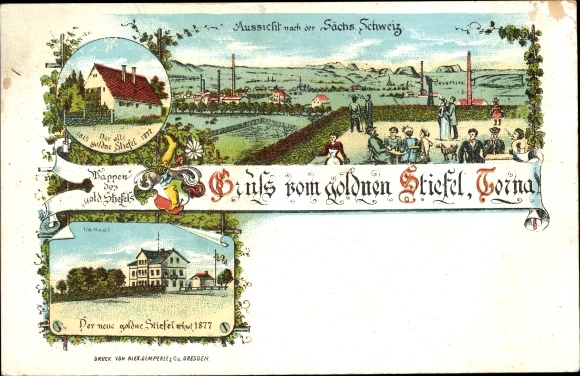 Aussicht nach der Sächs. Schweiz
1815 1877
Der alte
goldne Stiefel
Wappen
des
gold. Stiefels
Gruss vom goldnen Stiefel, Torna
Der neue goldne Stiefel erbaut 1877
DRUCK VON ALEX. GEMPERLE & Co. DRESDEN.